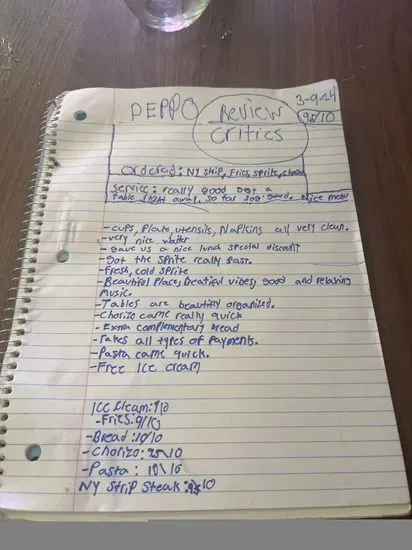 PEPPO Review 3-9-24
Critics 95/10
Ordered: NY strip, Fries, sprite, chorizo
Service: really good got a
table right away, so far soo good. Nice menu
- cups, Plate, utensils, Napkins all very clean.
- very nice waiter
- gave us a nice lunch special discount
- Got the sprite really fast.
- Fresh, cold sprite
- Beautiful Place, beatiful vibes, good and relaxing
music.
- Tables are beautifly organized.
- Chorizo came really quick
- Extra complementary bread
- Takes all types of Payments.
- Pasta came quick.
- Free Ice cream
Ice cream: 9/10
- Fries: 9/10
- Bread: 10/10
- Chorizo: /10
- Pasta: 10/10
NY Strip Steak: /10